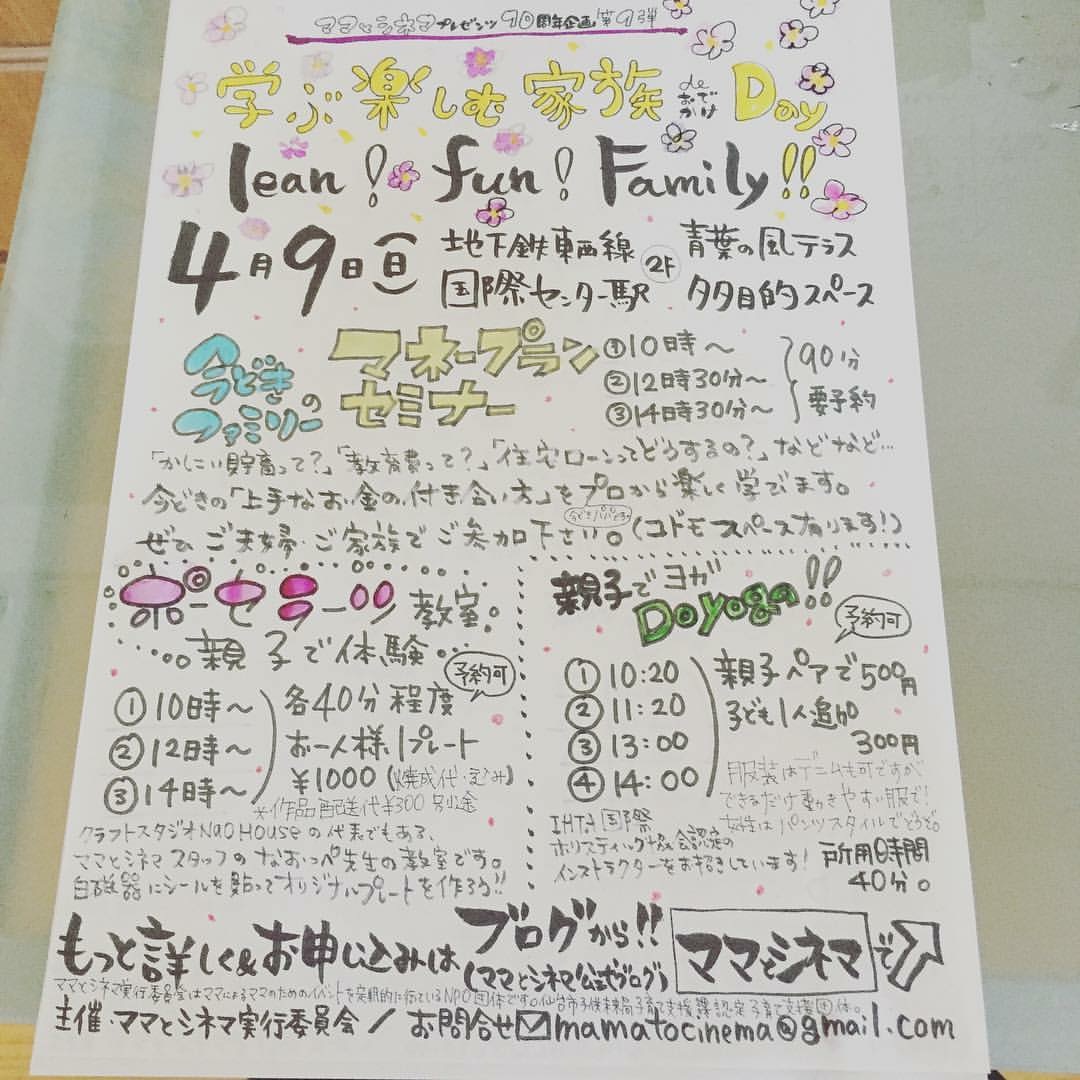 ママとシネマプレゼンツ10周年企画第1弾
学ぶ楽しむ家族deおでかけDay
lean! fun! Family!!
4月9日(日)
地下鉄東西線
国際センター駅
2F
青葉の風テラス
多目的スペース
今どきの
ファミリー
マネープラン
セミナー
①10時〜
②12時30分〜
③14時30分〜
90分
要予約
「かしこい貯蓄って?」「教育費って?」「住宅ローンってどうするの?」などなど…
今どきの「上手なお金の付き合い方」をプロから楽しく学びます。
ぜひご夫婦・ご家族でご参加下さい。(コドモスペース有ります!)
ポーセラーツ教室。
親子で体験…
予約可
①10時〜
②12時〜
③14時〜
各40分程度
お一人様1プレート
¥1000(焼成代・込み)
※作品配送代¥300別途
クラフトスタジオNaOHouseの代表でもある、
ママとシネマスタッフのなおっぺ先生の教室です。
白磁器にシールを貼ってオリジナルプレートを作ろう!!
親子でヨガ
Doyoga!!
予約可
①10:20
②11:20
③13:00
④14:00
親子ペアで500円
子ども1人追加
300円
服装はデニムも可ですが
できるだけ動きやすい服で!
女性はパンツスタイルでどうぞ。
IHTA国際
ホリスティック協会認定の
インストラクターをお招きしています!
所用時間
40分。
もっと詳しく&お申し込みは
ブログから!!
(ママとシネマ公式ブログ)
ママとシネマで
ママとシネマ実行委員会はママによるママのためのイベントを定期的に行っているNPO団体です。仙台市子供未来局子育て支援課認定子育て支援団体。
主催・ママとシネマ実行委員会/お問合せ✉mamatocinema@gmail.com